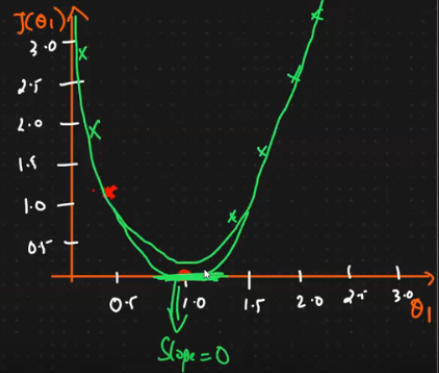 J(θ1)
3.0
2.5
2.0
1.5
1.0
0.5
0.5 1.0 1.5 2.0 2.5 3.0
θ1
Slope = 0